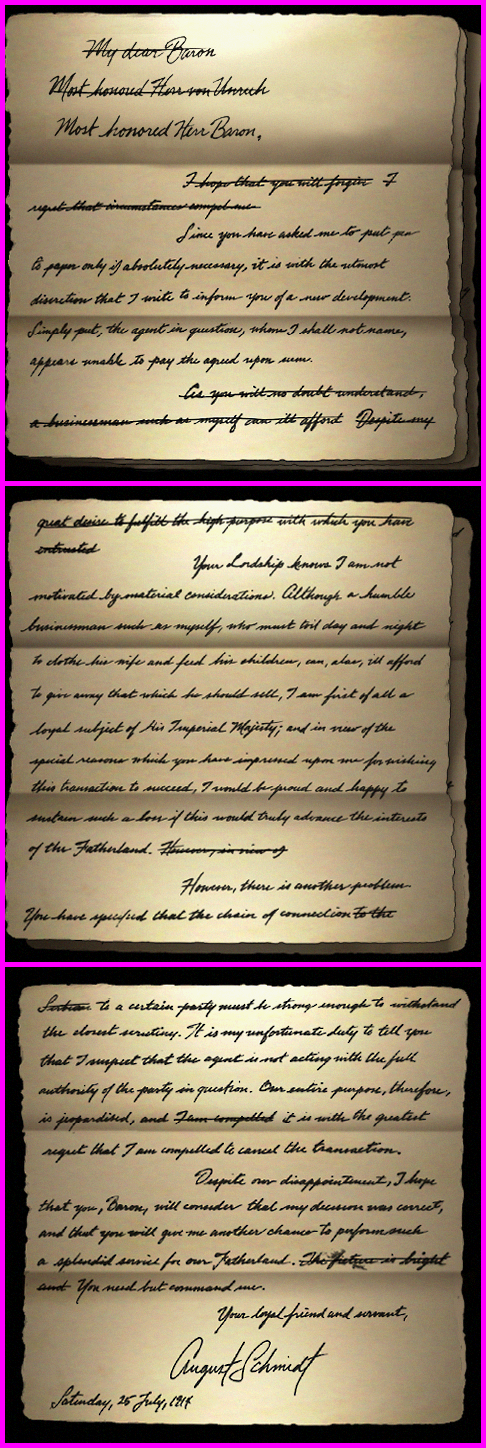 My dear Baron
Most honored Herr von Unrech
Most honored Herr Baron,
I hope that you will forgive I
regret that circumstances compel me
Since you have asked me to put pen
to paper only if absolutely necessary, it is with the utmost
discretion that I write to inform you of a new development.
Simply put, the agent in question, whom I shall not name,
appears unable to pay the agreed upon sum.
As you will no doubt understand,
a businessman such as myself can ill afford Despite my
great desire to fulfill the high purpose with which you have
entrusted
Your Lordship knows I am not
motivated by material considerations. Although a humble
businessman such as myself, who must toil day and night
to clothe his wife and feed his children, can, alas, ill afford
to give away that which he should sell, I am first of all a
loyal subject of His Imperial Majesty; and in view of the
special reasons which you have impressed upon me for wishing
this transaction to succeed, I would be proud and happy to
sustain such a loss if this would truly advance the interests
of the Fatherland. However, in view of
However, there is another problem
You have specified that the chain of connection to the
Serbian to a certain party must be strong enough to withstand
the closest scrutiny. It is my unfortunate duty to tell you
that I suspect that the agent is not acting with the full
authority of the party in question. Our entire purpose, therefore,
is jeopardised, and I am compelled it is with the greatest
regret that I am compelled to cancel the transaction.
Despite our disappointment, I hope
that you, Baron, will consider that my decision was correct,
and that you will give me another chance to perform such
a splendid service for our Fatherland. The future is bright
and You need but command me.
Your loyal friend and servant,
August Schmidt
Saturday, 25 July, 1914